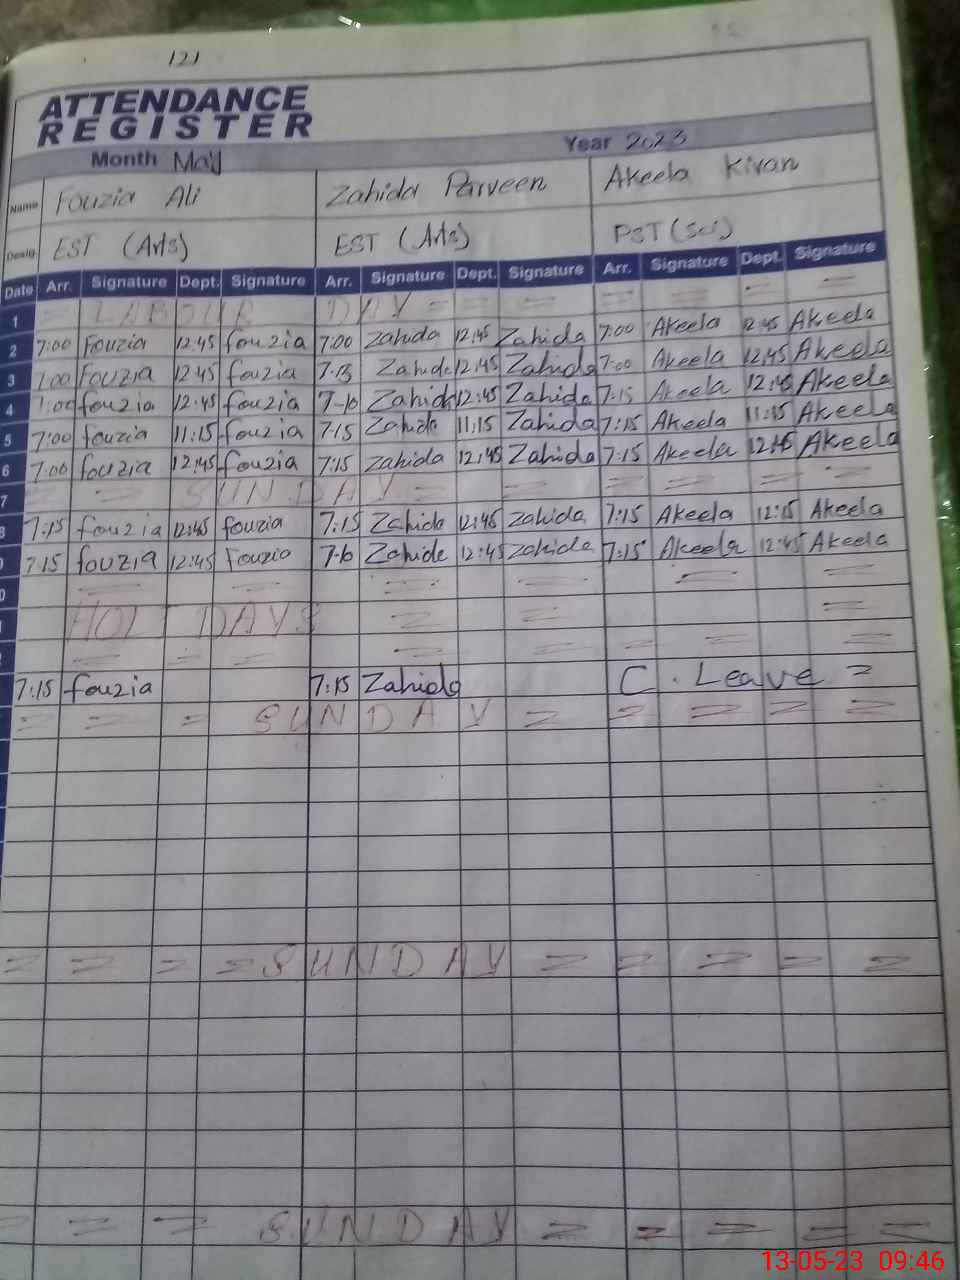 121
ATTENDANCE
REGISTER
Month May Year 2023
Name Fouzia Ali Zahida Parveen Akeela Kiran
Desig EST (Arts) EST (Arts) PST (Sci)
Date Arr. Signature Dept. Signature Arr. Signature Dept. Signature Arr. Signature Dept. Signature
1 = LABOUR DAY = = = = = = =
2 7:00 Fouzia 12:45 fouzia 7:00 Zahida 12:45 Zahida 7:00 Akeela 12:45 Akeela
3 7:00 Fouzia 12:45 fouzia 7:15 Zahida 12:45 Zahida 7:00 Akeela 12:45 Akeela
4 7:00 fouzia 12:45 fouzia 7-10 Zahida 12:45 Zahida 7:15 Akeela 12:45 Akeela
5 7:00 fouzia 11:15 fouzia 7:15 Zahida 11:15 Zahida 7:15 Akeela 11:15 Akeela
6 7:00 fouzia 12:45 fouzia 7:15 Zahida 12:45 Zahida 7:15 Akeela 12:45 Akeela
7 = = SUNDAY = = = = = =
7:15 fouzia 12:45 fouzia 7:15 Zahida 12:45 Zahida 7:15 Akeela 12:15 Akeela
7:15 fouzia 12:45 Fouzia Zahide 12:45 Zahida 7:15 Akeela 12:45 Akeela
= = = = = =
HOLI DAYS = = =
= = = = = =
7:15 fouzia 7:15 Zahida C. Leave =
= = = SUNDAY = = = = =
= = = = SUNDAY = = = = =
= = = SUNDAY = = = = =
13-05-23 09:46